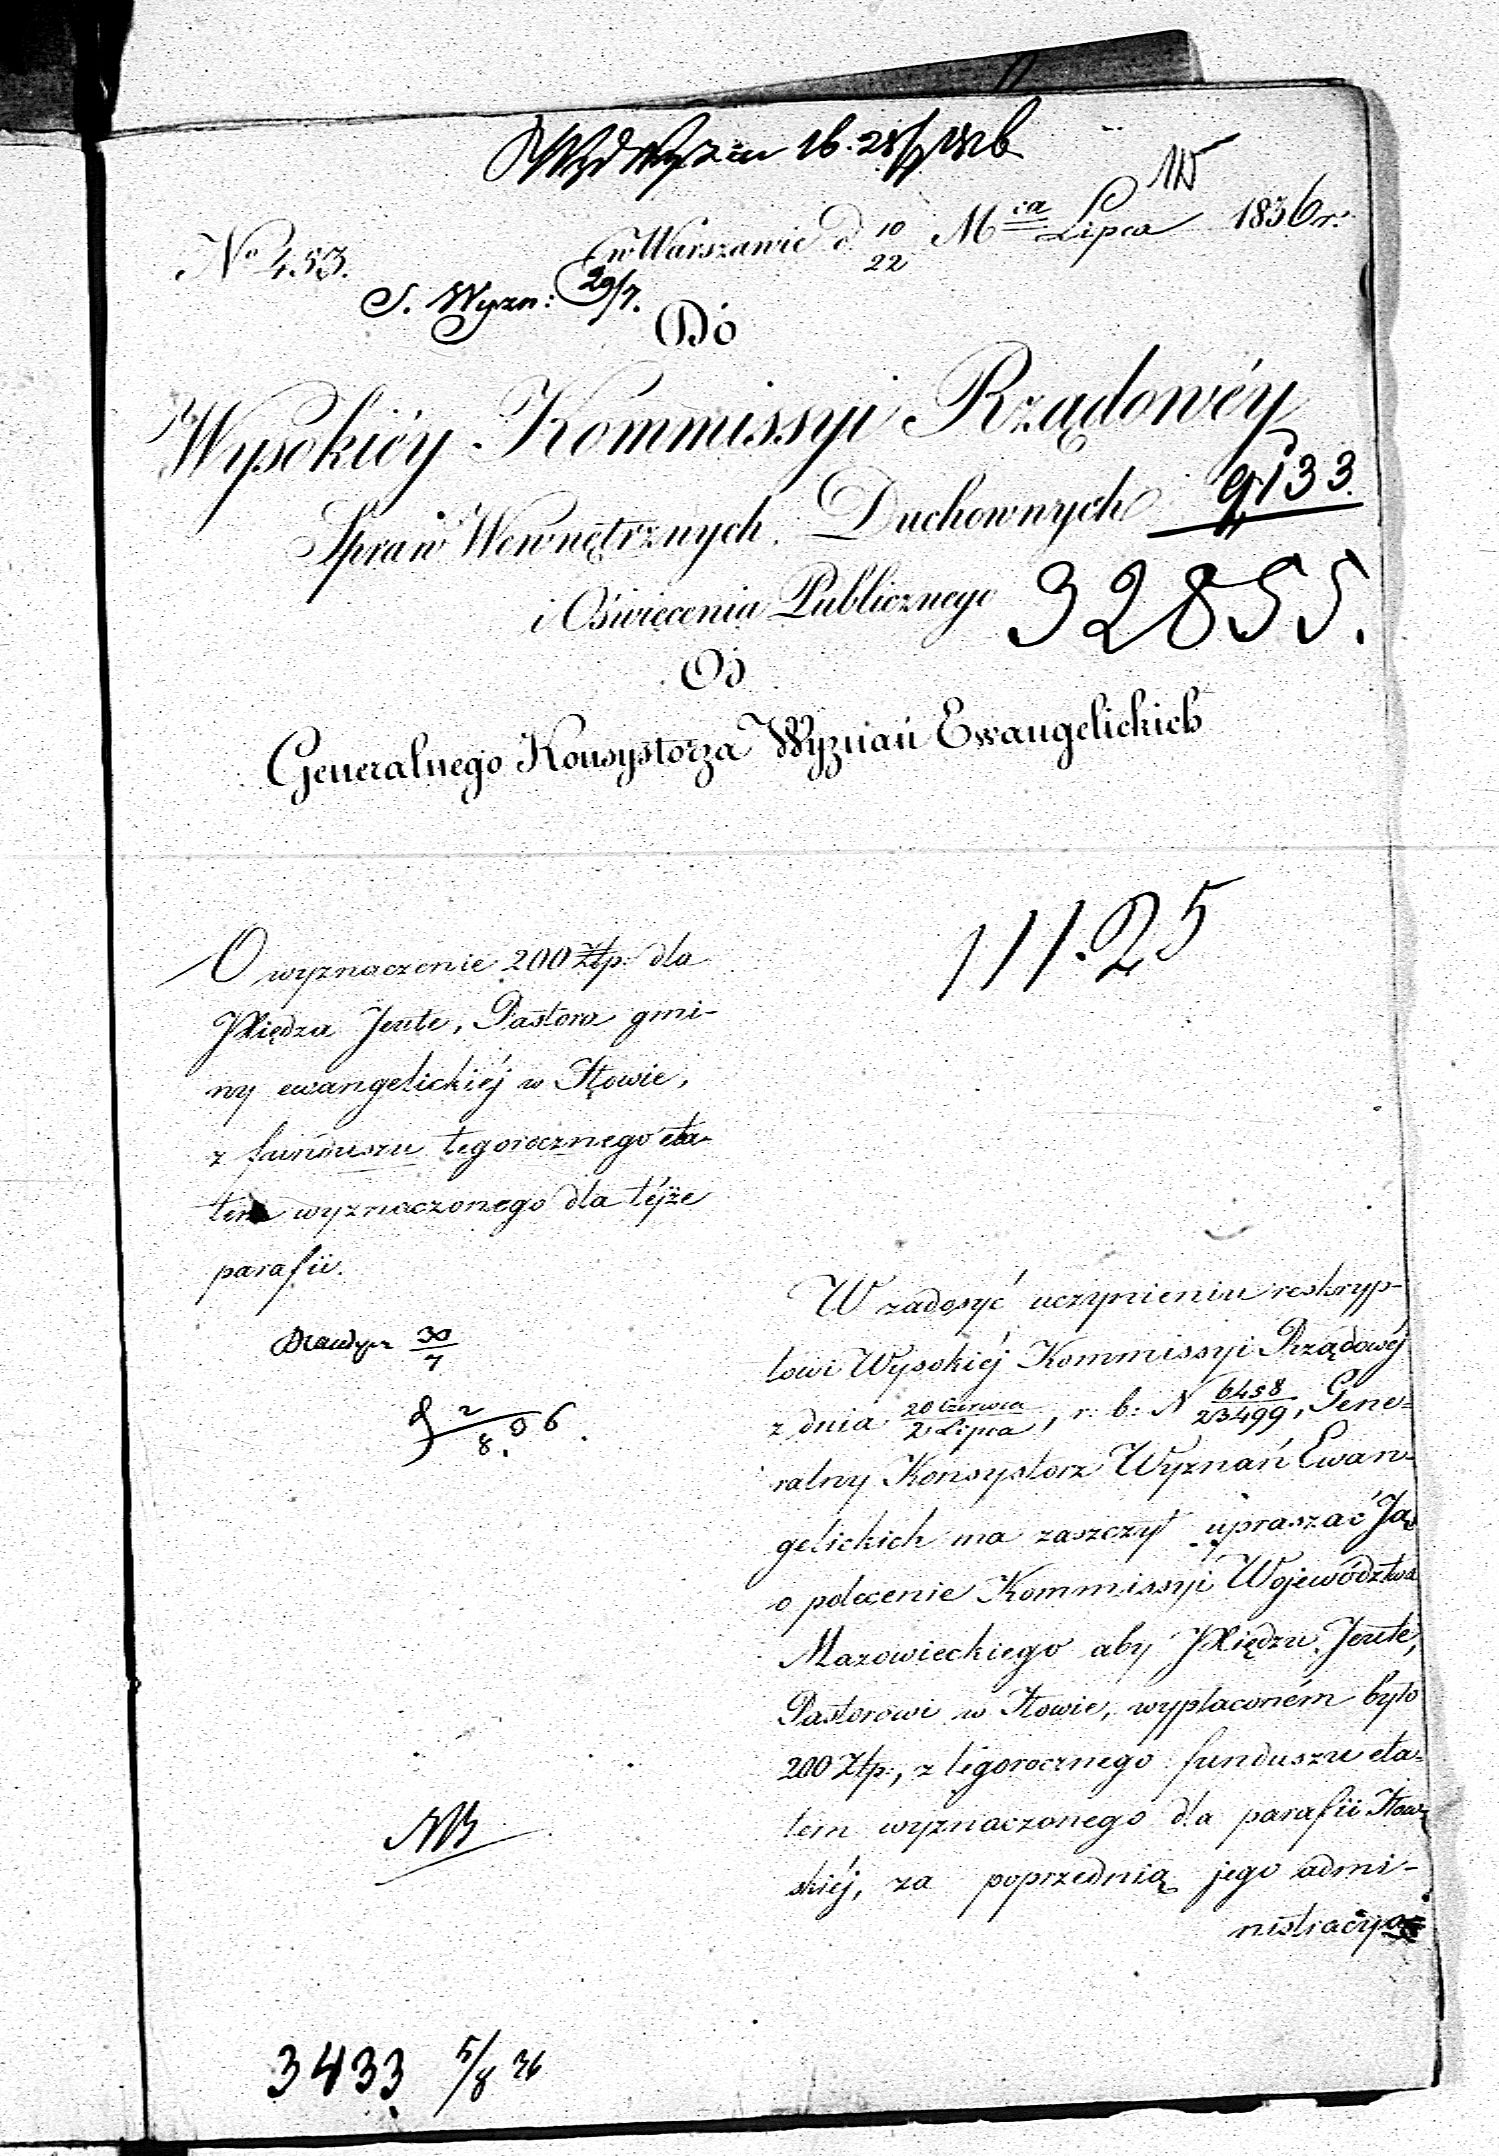 115
No 453.
w Warszawie d. 10/22 Mca Lipca 1836 r.
S. Wyzn: 29/7.
Do
Wysokiéy Kommissyi Rządowéy
Spraw Wewnętrznych, Duchownych
9133.
i Oświecenia Publicznego
32855.
Od
Generalnego Konsystorza Wyznań Ewangelickich
111.25
O wyznaczenie 200 Złp: dla
JXiędza Jeute, Pastora gmi-
ny ewangelickiéj w Iłowie,
z funduszu tegorocznego eta-
tem wyznaczonego dla téjże
parafii.
30/7
2/8 36.
W zadosyć uczynieniu reskryp-
towi Wysokiéj Kommissyi Rządowéj
z dnia 20 Czerwca/2 Lipca, r. b: N 6458/23499, Gene-
ralny Konsystorz Wyznań Ewan-
gelickich ma zaszczyt upraszać Ją
o polecenie Kommissyi Województwa
Mazowieckiego aby JXiędzu Jeute,
Pastorowi w Iłowie, wypłaconém było
200 Złp:, z tegorocznego funduszu eta-
tem wyznaczonego dla parafii Iłow-
skiéj, za poprzednią jego admi-
nistracyą
3433 5/8 36